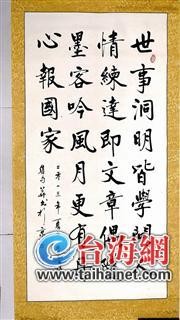 世事洞明皆學問
情練達即文章偶
墨客吟風月更有
心報國家
二零一三年
台海網
www.taihainet.com